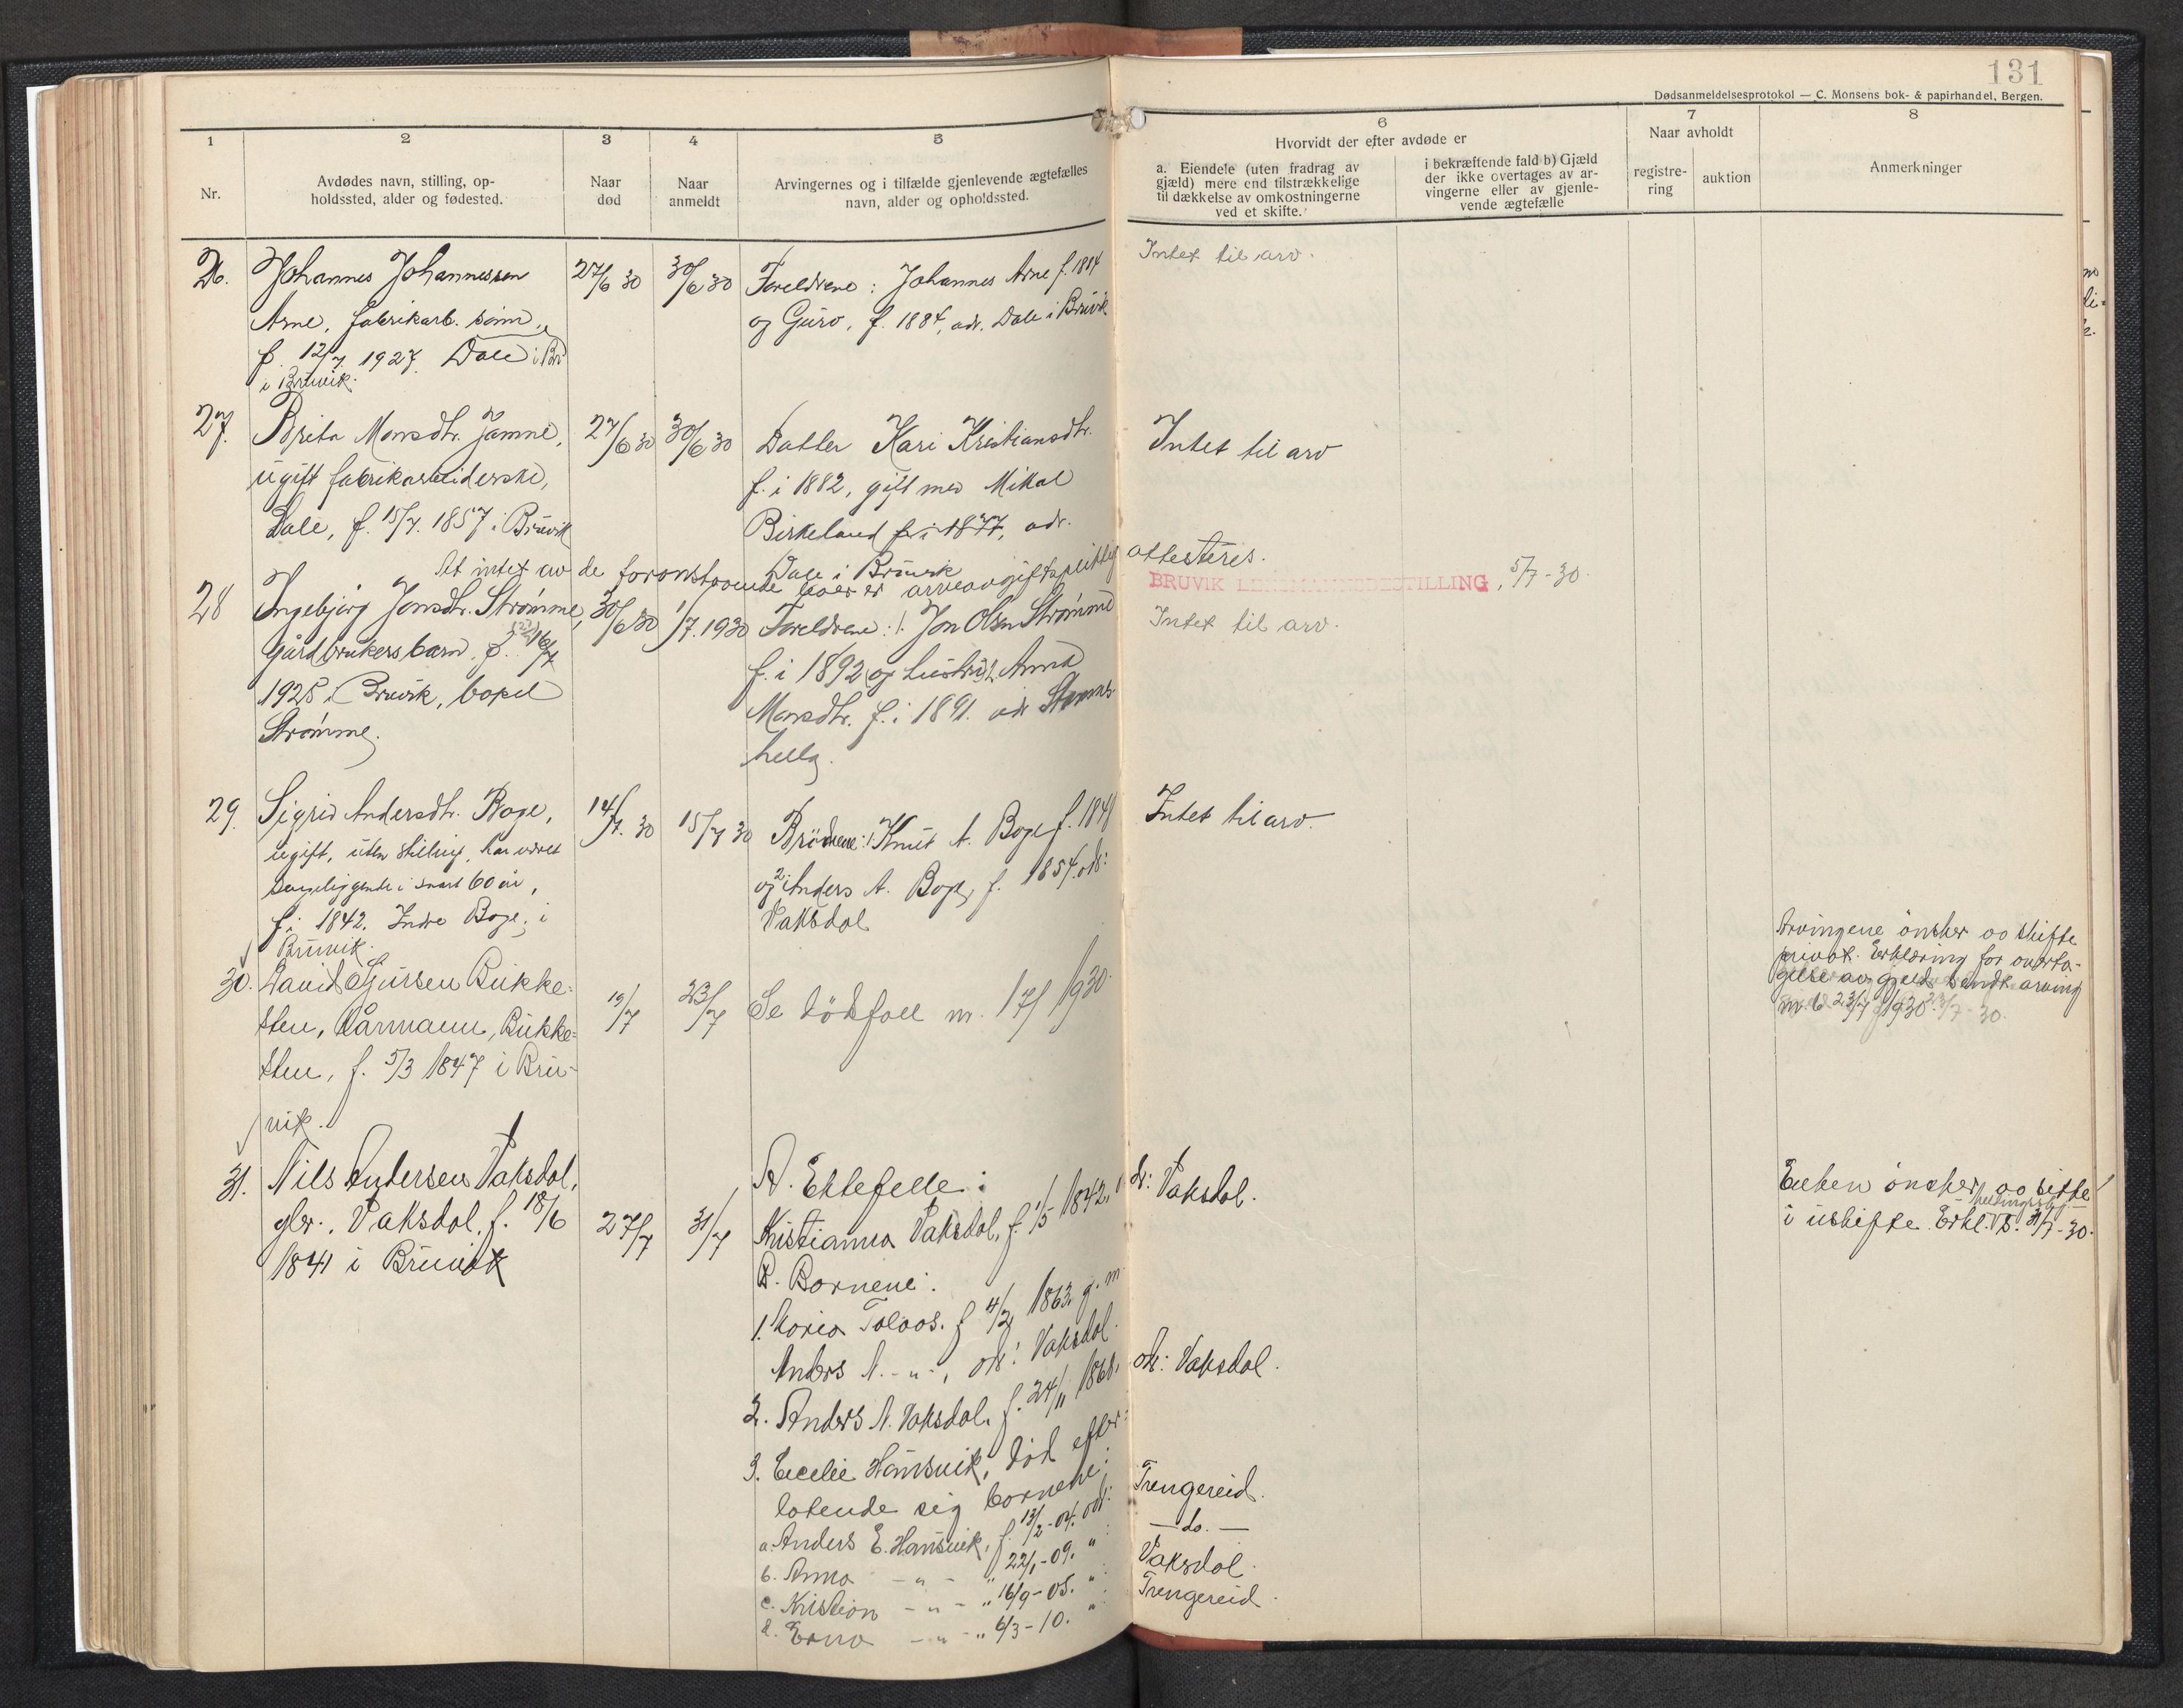 131
Dødsanmeldelsesprotokol — C. Monsens bok- & papirhandel, Bergen.
1
Nr.
2
Avdødes navn, stilling, op-
holdssted, alder og fødested.
3
Naar
død
4
Naar
anmeldt
5
Arvingernes og i tilfælde gjenlevende ægtefælles
navn, alder og opholdssted.
6
Hvorvidt der efter avdøde er
a. Eiendele (uten fradrag av
gjæld) mere end tilstrækkelige
til dækkelse av omkostningerne
ved et skifte.
i bekræftende fald b) Gjæld
der ikke overtages av ar-
vingerne eller av gjenle-
vende ægtefælle
7
Naar avholdt
registre-
ring
auktion
8
Anmerkninger
26.
Johannes Johannessen
Arne, fabrikarb. sønn,
f. 12/7 1927. Dale i Bru
i Bruvik.
27/6 30
30/6 30
Foreldrene: Johannes Arne f. 1884
og Guro, f. 1884, adr. Dale i Bruvik
Intet til arv.
27.
Brita Monsdtr. Jamne,
ugift fabrikarbeiderske,
Dale, f. 15/7. 1857 i Bruvik
27/6 30
30/6 30
Datter Kari Kristiansdtr.
f. i 1882, gift med Mikal
Birkeland f. i 1877, adr.
Dale i Bruvik
Intet til arv
At intet av de foranstående boer er arveavgiftspliktig attesteres.
BRUVIK LENSMANNSBESTILLING, 5/7-30.
28
Ingebjørg Jonsdtr. Strømme,
gårdbrukersbarn, f. 16/7
1928 i Bruvik, bopel
Strømme.
30/6 30
1/7. 1930
Foreldrene: 1. Jon Olsen Strømme
f. i 1892 og hustru 2. Anna
Monsdtr. f. i 1891. adr Stamnes-
hella.
Intet til arv.
29.
Sigrid Andersdtr. Boge,
ugift, uten stilling, har været
sengeliggende i snart 60 år,
f. i 1842. Indre Boge, i
Bruvik.
14/7. 30
15/7 30
Brødrene: 1. Knut A. Boge f. 1841
og 2. Anders A. Boge, f. 1854. adr:
Vaksdal
Intet til arv.
30.
David Sjursen Bukke-
sten, kårmann, Bukke-
sten, f. 5/3 1847 i Bru-
vik.
19/7
23/7
Se dødsfall nr. 17/1930.
Arvingene ønsker og skifte
privat. Erklæring for overta-
gelse av gjeld sendt arving
nr. 6 23/7 1930.
31.
Nils Andersen Vaksdal,
gbr., Vaksdal, f. 18/6
1841 i Bruvik
27/7
31/7
A. Ektefelle:
Kristianna Vaksdal, f. 1/5 1842, adr: Vaksdal.
B. Barnene:
1. Maria Toloos. f 4/2 1863. g. m.
Anders A. -"-, adr: Vaksdal.
2. Anders N. Vaksdal. f. 24/11 1868. adr: Vaksdal.
3. Cecelie Hamsvik, død efter-
latende sig barnene:
a. Anders E. Hamsvik, f. 13/2-04. adr: Trengereid.
b. Anna -"- " 22/1-09. " : —do.—
c. Kristian -"- " 16/9-05. " : Vaksdal.
d. Erna -"- " 6/3-10. " : Trengereid.
Enken ønsker og sitte
i uskifte. Erkl. 31/7-30.